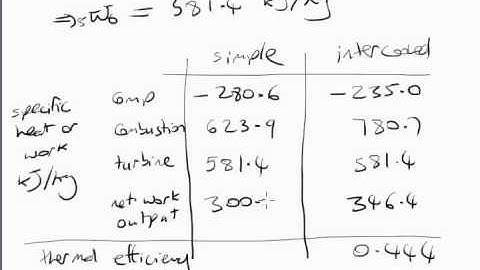 ⇒ ₅W₆ = 581.4 kJ/kg
simple intercooled
specific heat or work kJ/kg
comp -280.6 -235.0
combustion 623.9 780.7
turbine 581.4 581.4
net work output 300. 346.4
thermal efficiency 0.444